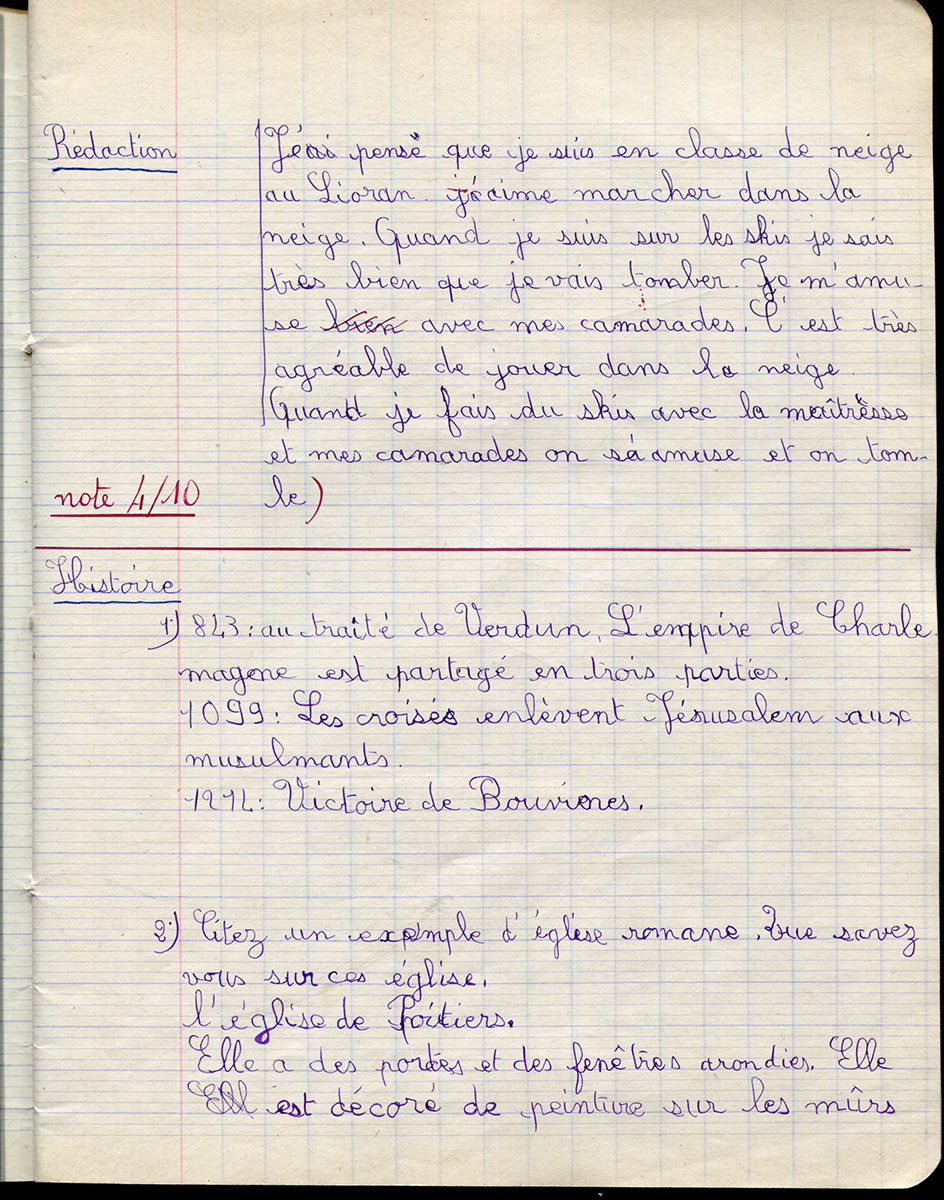 Rédaction
Jéai pensé que je suis en classe de neige
au Lioran. jéaime marcher dans la
neige. Quand je suis sur les skis je sais
très bien que je vais tomber. Je m'amu-
se bien avec mes camarades. C'est très
agréable de jouer dans la neige.
Quand je fais du skis avec la maîtresse
et mes camarades on séamuse et on tom-
be)
note 4/10
Histoire
1) 843: au traité de Verdun, L'empire de Charle
magene est partagé en trois parties.
1099: Les croisés enlèvent Jérusalem aux
musulmants.
1214: Victoire de Bouvienes.
2) Citez un exemple d'église romane. Que savez
vous sur ces église.
l'église de Poitiers.
Elle a des portes et des fenêtres arondies. Elle
est décoré de peinture sur les mûrs